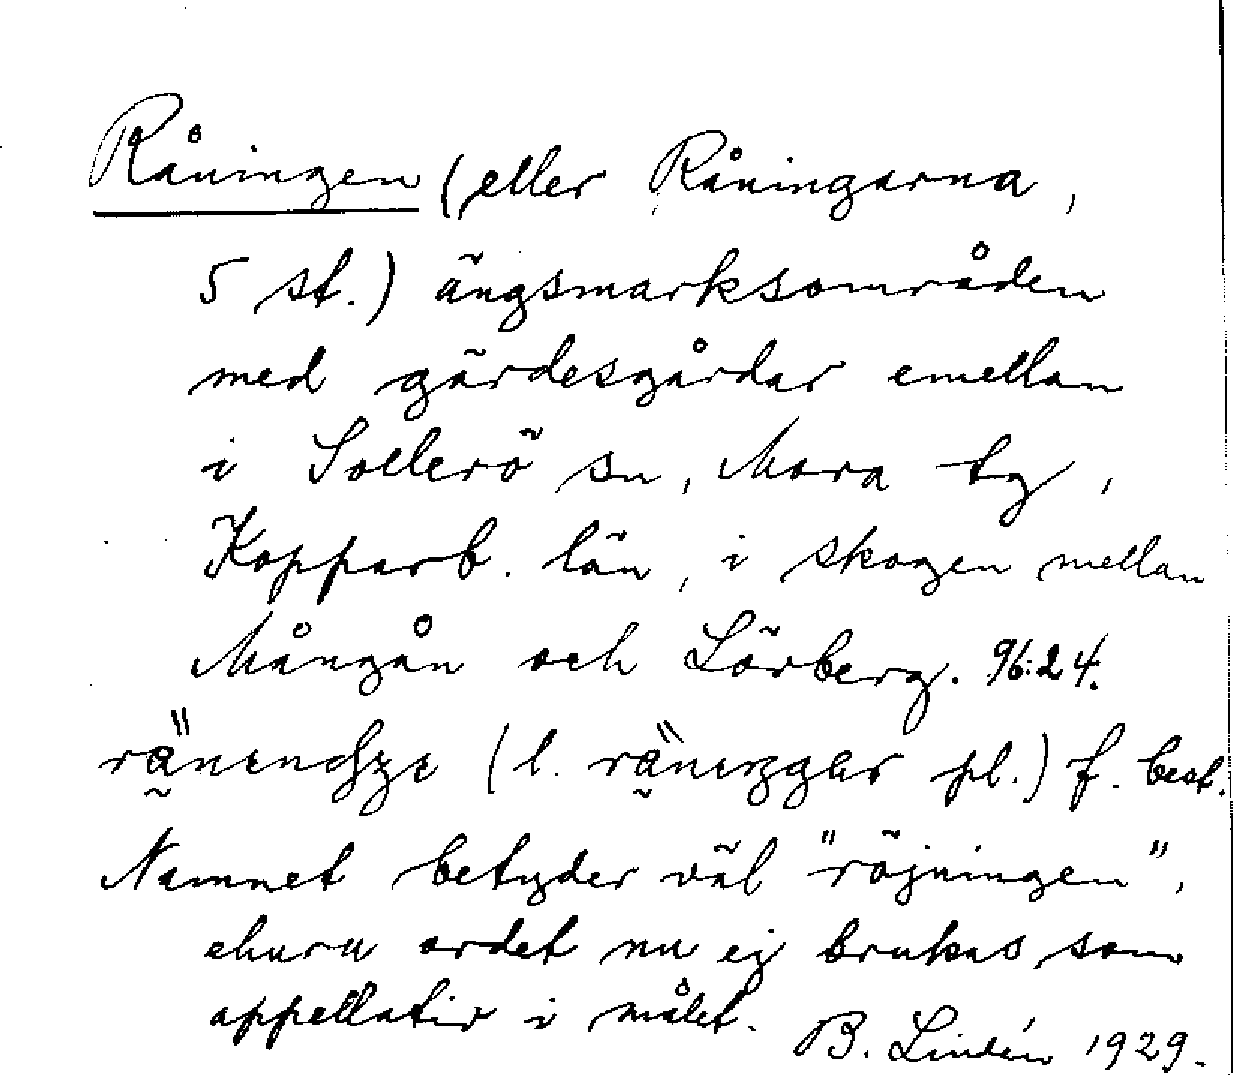 Råningen (eller Råningarna,
5 st.) ängsmarksområden
med gärdesgårdar emellan
i Sollerö sn, Mora tg,
Kopparb. län, i skogen mellan
Mångån och Lörberg. 96:24.
(l. pl.) f. best.
Namnet betyder väl "röjningen",
ehuru ordet nu ej brukas som
appellativ i målet.
B. Lindén 1929.